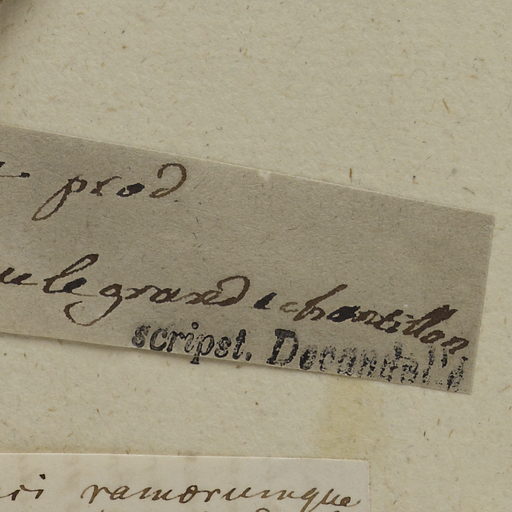 prod
le grand echantillon
scripst. Decandoll'd
ramorumque